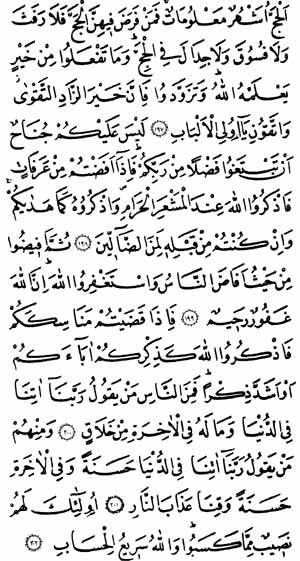 اَلْحَجُّ اَشْهُرٌ مَعْلُومَاتٌ فَمَنْ فَرَضَ فِيهِنَّ الْحَجَّ فَلَا رَفَثَ
وَلَا فُسُوقَ وَلَا جِدَالَ فِي الْحَجِّ وَمَا تَفْعَلُوا مِنْ خَيْرٍ
يَعْلَمْهُ اللّٰهُ وَتَزَوَّدُوا فَاِنَّ خَيْرَ الزَّادِ التَّقْوٰى
وَاتَّقُونِ يَا اُولِي الْاَلْبَابِ ﴿١٩٧﴾ لَيْسَ عَلَيْكُمْ جُنَاحٌ
اَنْ تَبْتَغُوا فَضْلًا مِنْ رَبِّكُمْ فَاِذَا اَفَضْتُمْ مِنْ عَرَفَاتٍ
فَاذْكُرُوا اللّٰهَ عِنْدَ الْمَشْعَرِ الْحَرَامِ وَاذْكُرُوهُ كَمَا هَدٰيكُمْ
وَاِنْ كُنْتُمْ مِنْ قَبْلِهِ لَمِنَ الضَّٓالِّينَ ﴿١٩٨﴾ ثُمَّ اَفِيضُوا
مِنْ حَيْثُ اَفَاضَ النَّاسُ وَاسْتَغْفِرُوا اللّٰهَ اِنَّ اللّٰهَ
غَفُورٌ رَحِيمٌ ﴿١٩٩﴾ فَاِذَا قَضَيْتُمْ مَنَاسِكَكُمْ
فَاذْكُرُوا اللّٰهَ كَذِكْرِكُمْ اٰبَٓاءَكُمْ
اَوْ اَشَدَّ ذِكْرًا فَمِنَ النَّاسِ مَنْ يَقُولُ رَبَّنَٓا اٰتِنَا
فِي الدُّنْيَا وَمَا لَهُ فِي الْاٰخِرَةِ مِنْ خَلَاقٍ ﴿٢٠٠﴾ وَمِنْهُمْ
مَنْ يَقُولُ رَبَّنَٓا اٰتِنَا فِي الدُّنْيَا حَسَنَةً وَفِي الْاٰخِرَةِ
حَسَنَةً وَقِنَا عَذَابَ النَّارِ ﴿٢٠١﴾ اُولٰٓئِكَ لَهُمْ
نَصِيبٌ مِمَّا كَسَبُوا وَاللّٰهُ سَرِيعُ الْحِسَابِ ﴿٢٠٢﴾